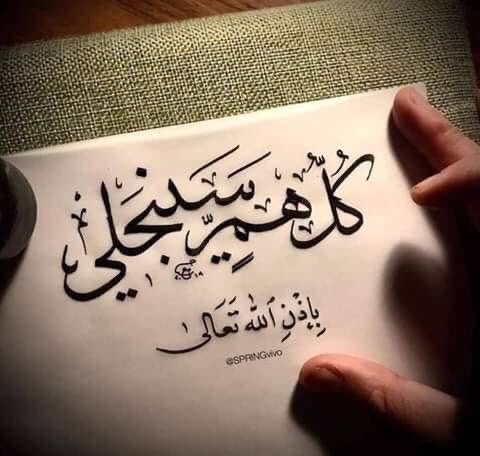 كُلُّ هَمٍّ سَيَنجَلي
بِإذْنِ ٱللّٰه تَعَالى
@SPRINGvivo